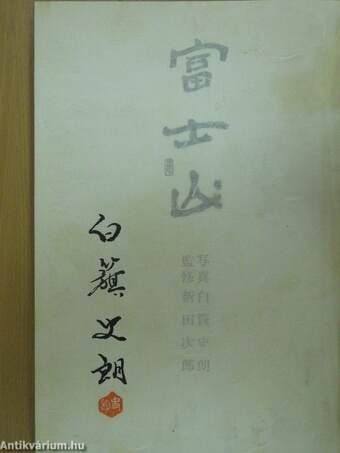 富士山
写真 白籏史朗
監修 新田次郎
白籏史朗
Antikvárium.hu